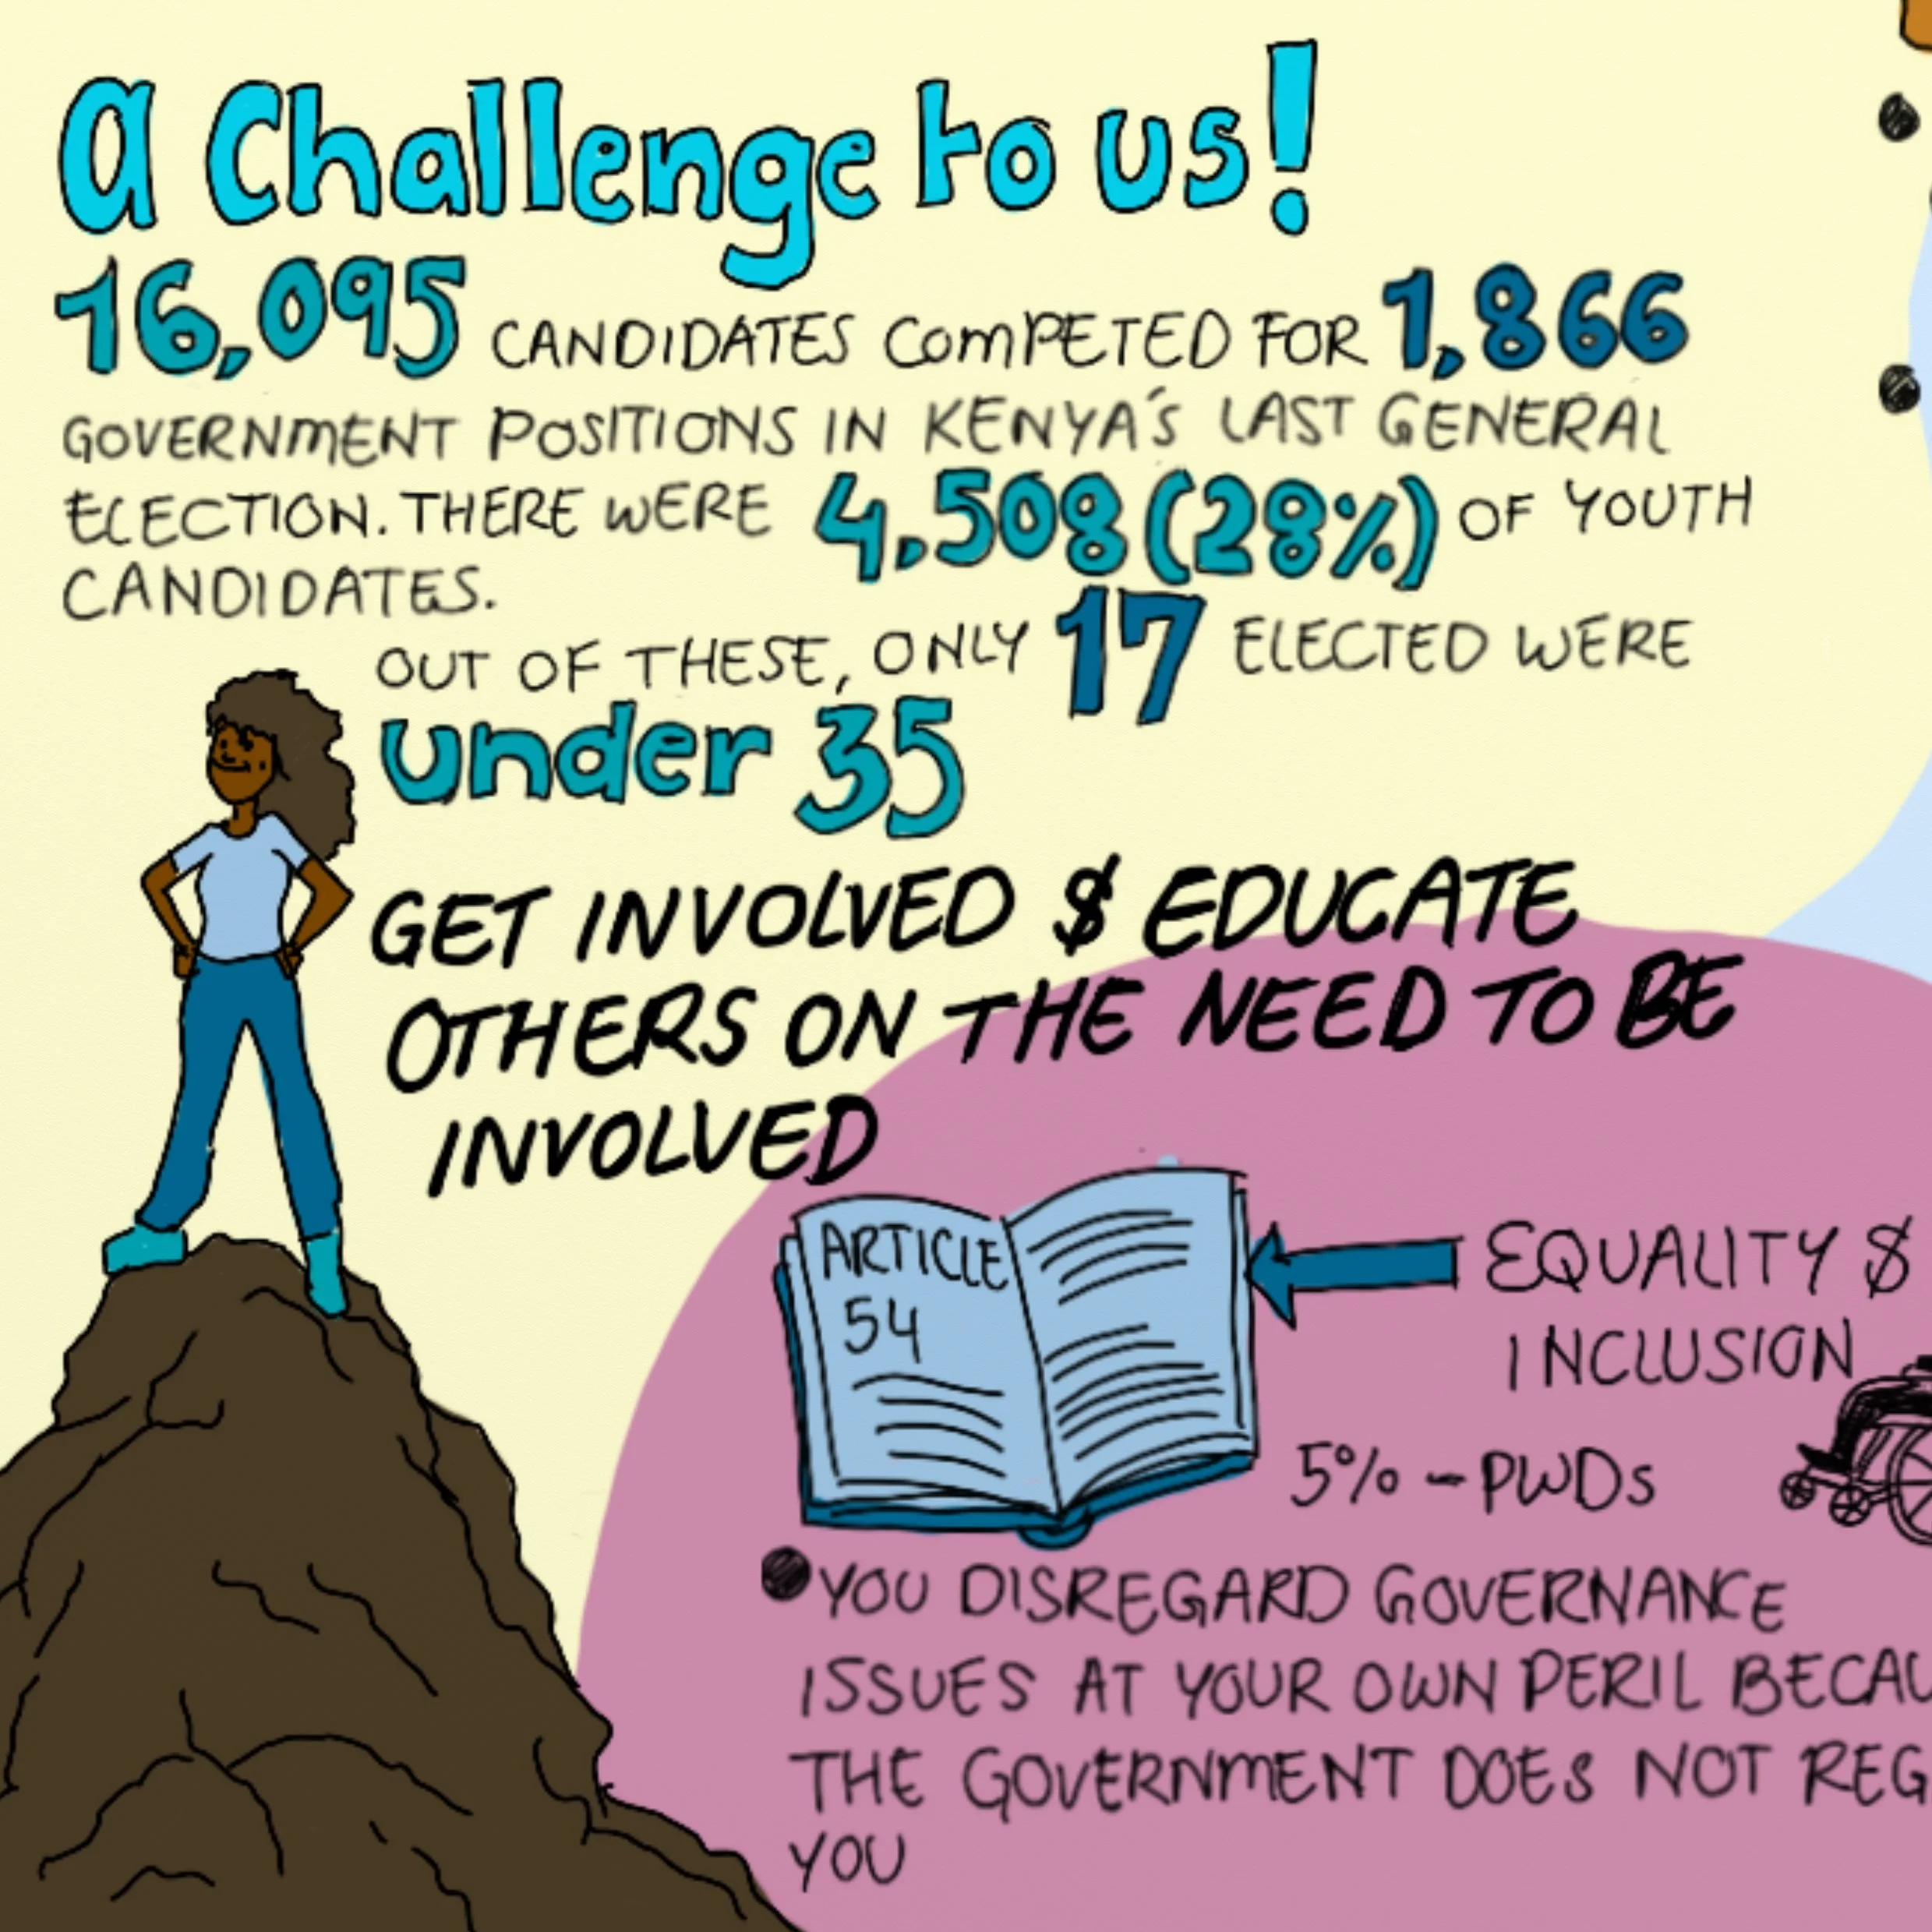 a Challenge to us!
16,095 CANDIDATES COMPETED FOR 1,866
GOVERNMENT POSITIONS IN KENYA'S LAST GENERAL
ELECTION. THERE WERE 4,508 (28%) OF YOUTH
CANDIDATES.
OUT OF THESE, ONLY 17 ELECTED WERE
under 35
GET INVOLVED $ EDUCATE
OTHERS ON THE NEED TO BE
INVOLVED
ARTICLE
54
EQUALITY $
INCLUSION
5% - PWDs
YOU DISREGARD GOVERNANCE
ISSUES AT YOUR OWN PERIL BECAU
THE GOVERNMENT DOES NOT REG
YOU